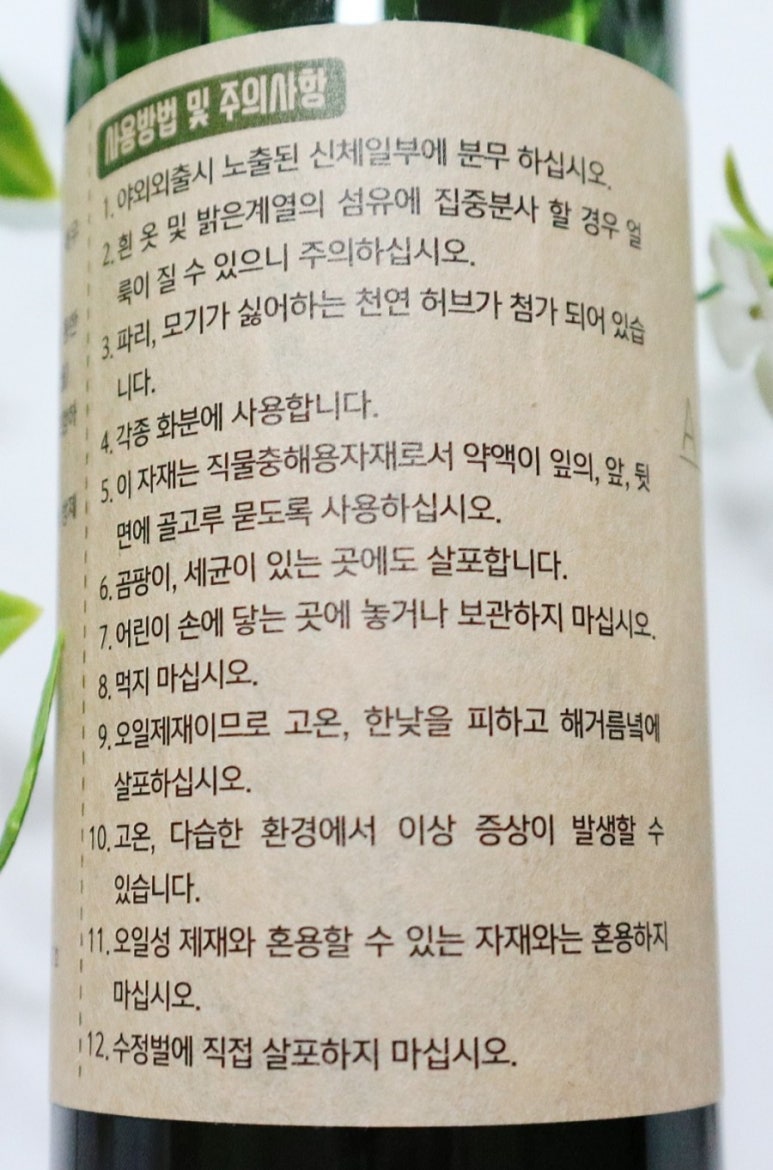 사용방법 및 주의사항
1. 야외외출시 노출된 신체일부에 분무 하십시오.
2. 흰 옷 및 밝은계열의 섬유에 집중분사 할 경우 얼
룩이 질 수 있으니 주의하십시오.
3. 파리, 모기가 싫어하는 천연 허브가 첨가 되어 있습
니다.
4. 각종 화분에 사용합니다.
5. 이 자재는 직물충해용자재로서 약액이 잎의, 앞, 뒷
면에 골고루 묻도록 사용하십시오.
6. 곰팡이, 세균이 있는 곳에도 살포합니다.
7. 어린이 손에 닿는 곳에 놓거나 보관하지 마십시오.
8. 먹지 마십시오.
9. 오일제재이므로 고온, 한낮을 피하고 해거름녘에
살포하십시오.
10. 고온, 다습한 환경에서 이상 증상이 발생할 수
있습니다.
11. 오일성 제재와 혼용할 수 있는 자재와는 혼용하지
마십시오.
12. 수정벌에 직접 살포하지 마십시오.